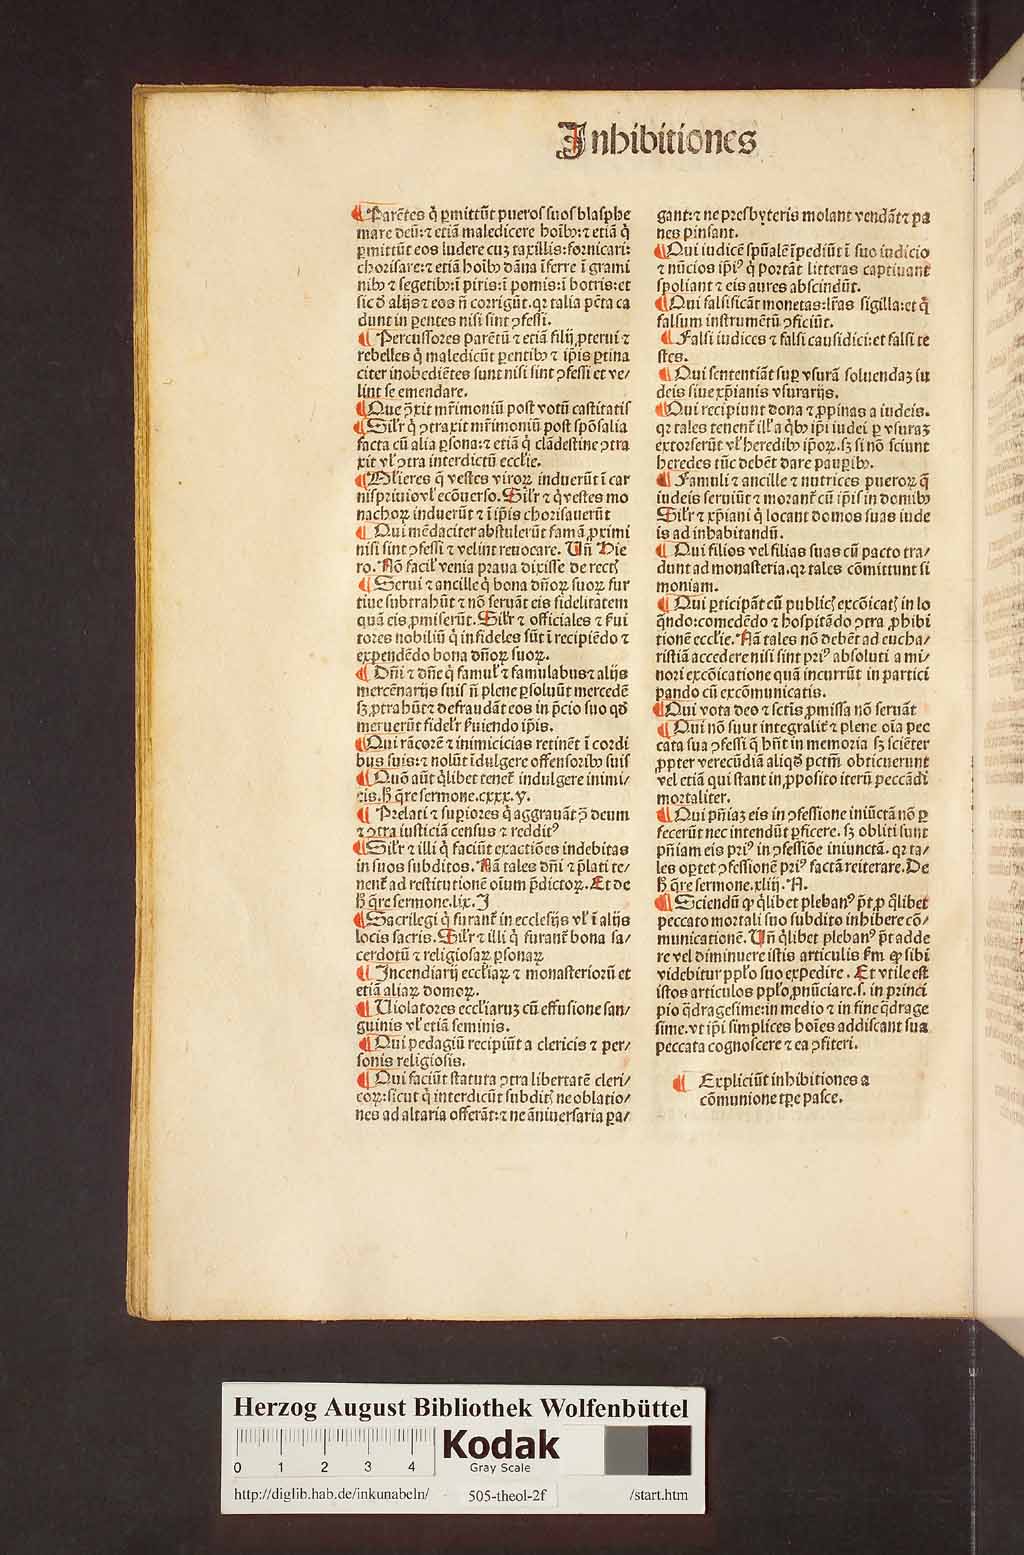 Inhibitiones
¶ Parētes q̇ ꝑmittūt pueros suos blasphe
mare deū: ⁊ etiā maledicere hoībꝰ: ⁊ etiā q̇
ꝑmittūt eos ludere cuꝫ taxillis: fornicari:
chorisare: ⁊ etiā hoībꝰ dāna īferre ī grami
nibꝰ ⁊ segetibꝰ: ī piris: ī pomis: ī botris: et
sic ꝺ alijs ⁊ eos ñ corrigūt. qꝛ talia pc̄ta ca
dunt in ꝑentes nisi sint ꝯfessi.
¶ Percussores parētū ⁊ etiā filij ꝓterui ⁊
rebelles q̇ maledicūt ꝑentibꝰ ⁊ ip̄is ꝑtina
citer inobediētes sunt nisi sint ꝯfessi et ve/
lint se emendare.
¶ Que ꝯ̄xit mr̄imoniū post votū castitatis
¶ Silr̄ q̇ ꝯtraxit mr̄imoniū post spōsalia
facta cū alia ꝑsona: ⁊ etiā q̇ clādestine ꝯtra
xit vl̓ ꝯtra interdictū eccl̓ie.
¶ Mlieres q̄ vestes viroꝝ induerūt ī car
nispriuio vl̓ ecōuerso. Silr̄ ⁊ q̇ vestes mo
nachoꝝ induerūt ⁊ ī ip̄is chorisauerūt
¶ Qui mēdaciter abstulerūt famā ꝓximi
nisi sint ꝯfessi ⁊ velint reuocare. Vñ Hie
ro. Nō facil̓ venia praua dixisse de rectꝭ
¶ Serui ⁊ ancille q̇ bona dñoꝝ suoꝝ fur
tiue subtrahūt ⁊ nō seruāt eis fidelitatem
quā eis ꝓmiserūt. Silr̄ ⁊ officiales ⁊ ẜui
tores nobiliū q̇ infideles sūt ī recipiēdo ⁊
expendēdo bona dñoꝝ suoꝝ.
¶ Dñi ⁊ dñe q̇ famul̓ ⁊ famulabus ⁊ alijs
mercēnarijs suis ñ plene ꝑsoluūt mercedē
sꝫ ꝓtrahūt ⁊ defraudāt eos in p̄cio suo qd̄
meruerūt fidelr̄ ẜuiendo ip̄is.
¶ Qui rācorē ⁊ inimicicias retinēt ī cordi
bus suis: ⁊ nolūt īdulgere offensoribꝰ suis
¶ Quō aūt q̇libet tenet̄ indulgere inimi/
cis. H̄ q̄re sermone. cxxx. v.
¶ Prelati ⁊ suꝑiores q̇ aggrauāt ꝯ̄ deum
⁊ ꝯtra iusticiā census ⁊ redditꝰ
¶ Silr̄ ⁊ illi q̇ faciūt exactiōes indebitas
in suos subditos. Nā tales dñi ⁊ p̄lati te/
nent̄ ad restitutionē oīum p̄dictoꝝ. Et de
h̄ q̄re sermone. lix. J
¶ Sacrilegi q̇ furant̄ in ecclesijs vl̓ ī alijs
locis sacris. Silr̄ ⁊ illi q̇ furant̄ bona sa/
cerdotū ⁊ religiosaꝝ ꝑsonaꝝ
¶ Incendiarij eccl̓iaꝝ ⁊ monasterioru et
etiā aliaꝝ domoꝝ.
¶ Violatores eccl̓iaruꝫ cū effusione san/
guinis vl̓ etiā seminis.
¶ Qui pedagiū recipiūt a clericis ⁊ per/
sonis religiosis.
¶ Qui faciūt statuta ꝯtra libertatē cleri/
coꝝ: sicut q̇ interdicūt subditꝭ ne oblatio/
nes ad altaria offerāt: ⁊ ne āniuersaria ꝑa/
gant: ⁊ ne presbyteris molant vendāt ⁊ pa
nes pinsant.
¶ Qui iudicē spūalē īpediūt ī suo iudicio
⁊ nūcios ip̄iꝰ q̇ portāt litteras captiuant
spoliant ⁊ eis aures abscindūt.
¶ Qui falsificāt monetas: lr̄as sigilla: et q̇
falsum instrumētū ꝯficiūt.
¶ Falsi iudices ⁊ falsi causidici: et falsi te
stes.
¶ Qui sententiāt suꝑ vsurā soluendaꝫ iu
deis siue xp̄ianis vsurarijs.
¶ Qui recipiunt dona ⁊ ꝓpinas a iudeis.
qꝛ tales tenent̄ ill̓a q̇bꝰ ip̄i iudei ꝑ vsuraꝫ
extorserūt vl̓ heredibꝰ ip̄oꝝ. sꝫ si nō sciunt
heredes tūc debēt dare pauꝑibꝰ.
¶ Famuli ⁊ ancille ⁊ nutrices pueroꝝ q̇
iudeis seruiūt ⁊ morant̄ cū ip̄is in domibꝰ
Silr̄ ⁊ xp̄iani q̇ locant domos suas iude
is ad inhabitandū.
¶ Qui filios vel filias suas cū pacto tra/
dunt ad monasteria. qꝛ tales cōmittunt si
moniam.
¶ Qui ꝑticipāt cū publicꝭ excōicatꝭ in lo
q̄ndo: comedēdo ⁊ hospitādo ꝯtra ꝓhibi
tionē eccl̓ie. Nā tales nō debēt ad eucha/
ristiā accedere nisi sint priꝰ absoluti a mi/
nori excōicatione quā incurrūt in partici
pando cū excōmunicatis.
¶ Qui vota deo ⁊ sctīs ꝓmissa nō seruāt
¶ Qui nō suut integralit̄ ⁊ plene oīa pec
cata sua ꝯfessi q̄ hn̄t in memoria sꝫ sciēter
ꝓpter verecūdiā aliqd̄ pctm̄ obticuerunt
vel etiā qui stant in ꝓposito iterū peccādi
mortaliter.
¶ Qui pn̄iaꝫ eis in ꝯfessione iniūctā nō ꝑ
fecerūt nec intendūt ꝑficere. sꝫ obliti sunt
pn̄iam eis priꝰ in ꝯfessiōe iniunctā. qꝛ ta/
les oꝑtet ꝯfessionē priꝰ factā reiterare. De
h̄ q̄re sermone. xliij. A.
¶ Sciendū ꝙ q̇libet plebanꝰ p̄t ꝓ q̇libet
peccato mortali suo subdito inhibere cō/
municationē. Vñ q̇libet plebanꝰ p̄t adde
re vel diminuere istis articulis ẜm ꝙ sibi
videbitur ppl̓o suo expedire. Et vtile est
istos articulos ppl̓o ꝓnūciare. s. in princi
pio q̄dragesime: in medio ⁊ in fine q̄drage
sime. vt ip̄i simplices hoīes addiscant sua
peccata cognoscere ⁊ ea ꝯfiteri.
¶ Expliciūt inhibitiones a
cōmunione tꝑe pasce.
Herzog August Bibliothek Wolfenbüttel
0 1 2 3 4
Kodak
Gray Scale
http://diglib.hab.de/inkunabeln/ 505-theol-2f /start.htm